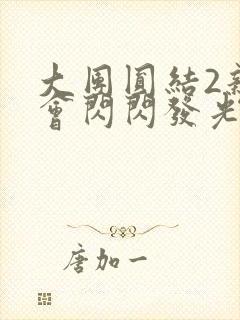 大團圓結2
會閃閃發光
唐加一